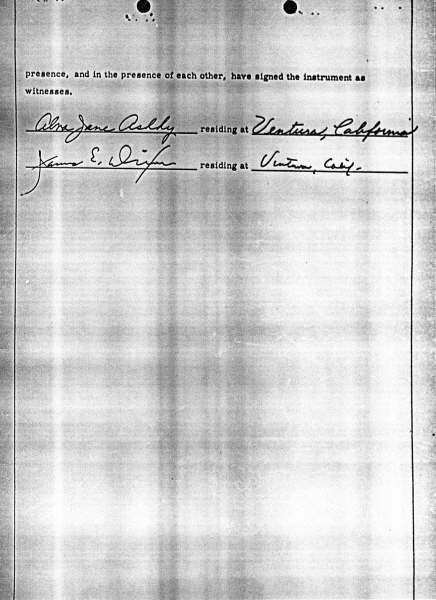 presence, and in the presence of each other, have signed the instrument as
witnesses.
Jane Ashby residing at Ventura, California
James E. residing at Ventura, Calif.